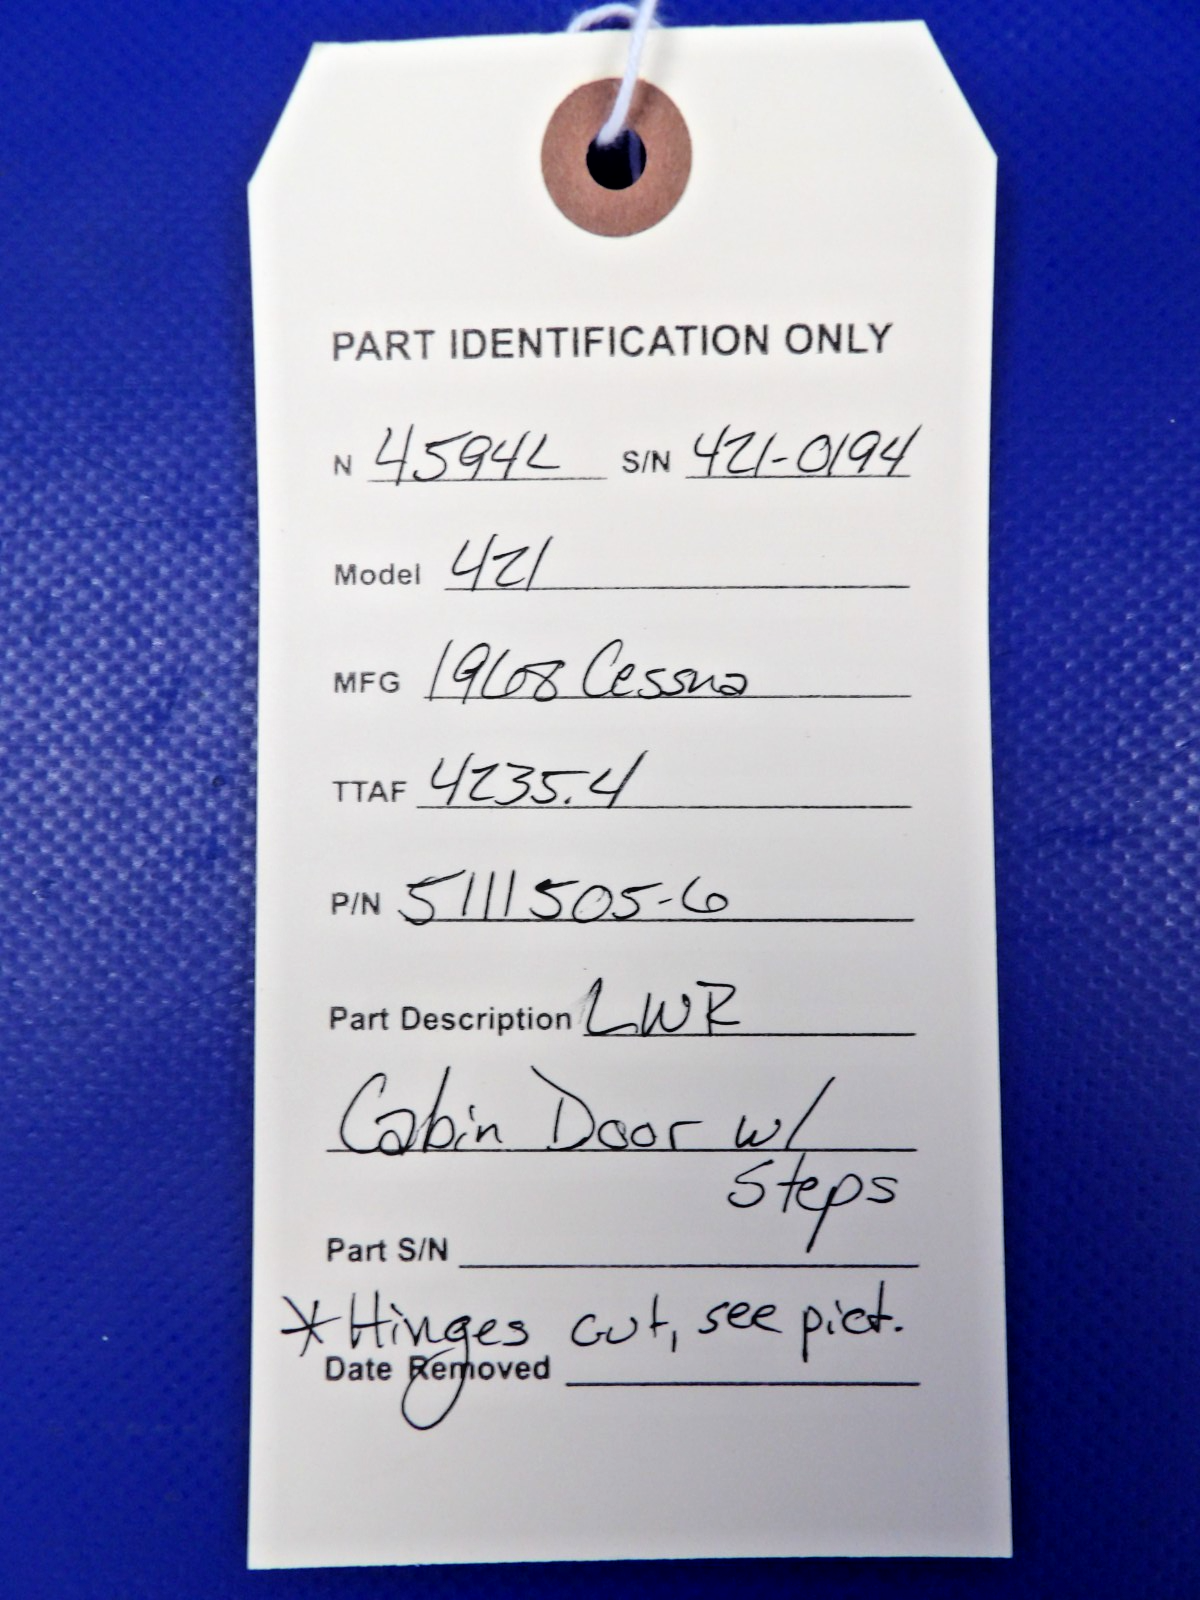 PART IDENTIFICATION ONLY
N 4594L S/N 421-0194
Model 421
MFG 1968 Cessna
TTAF 4235.4
P/N 5111505-6
Part Description LWR
Cabin Door w/
Steps
Part S/N
*Hinges cut, see pict.
Date Removed